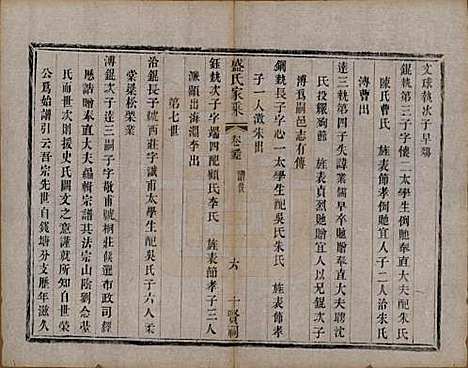 文球執次子早殤
錕執第三子字悽一太學生貤贈奉直大夫配朱氏
陳氏曹氏 旌表節孝倒貤贈宜人子二人洽朱氏
溥曹出
達三執第四子失諱業儒早卒貤贈奉直大夫聘沈
氏投繯殉節 旌表貞烈貤贈宜人以兄錕次子
溥爲嗣邑志有傳
鋼執長子字心一太學生配吳氏朱氏 旌表節孝
子一人濲朱出
鈺執次子字端四配顧氏李氏 旌表節孝子三人
濂顧出海瀾李出
盛氏家乘 卷 譜世 六 十賢祠
第七世
洽錕長子號西莊字識甫太學生配吳氏子六人柔
棠 松榮業
溥錕次子達三嗣子字敬甫號桐莊候選布政司經
歷誥贈奉直大夫編輯宗譜其法宗山陰劉念基
氏而世次則援史氏闕文之意謹就所自知自世榮
公爲始譜引云吾宗先世自錢塘分支歷年滋久